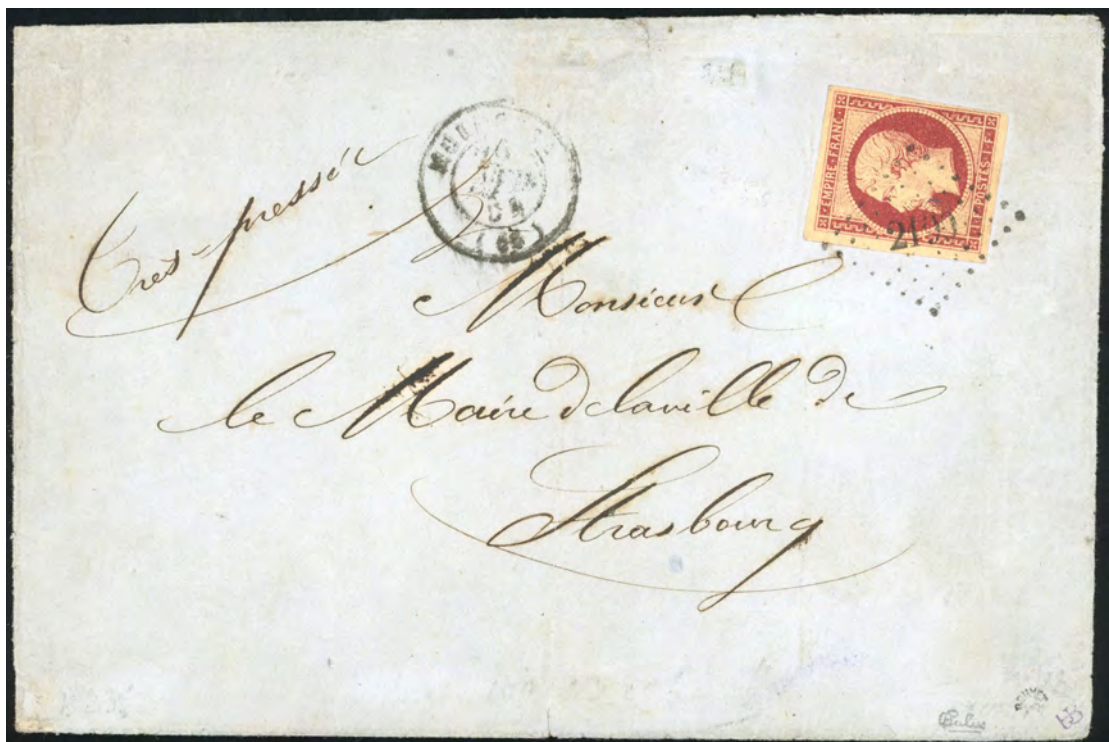 Tres-pressée
(66)
EMPIRE FRANC
1 F POSTES 1 F
Monsieur
le Maire de la ville de
Strasbourg